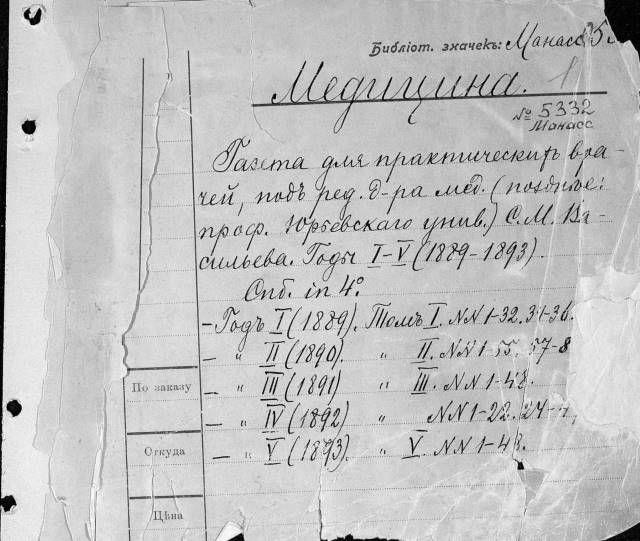 Библіот. значекъ: Манасс. 5
Медицина. 1
№ 5332
Манасс
Газета для практическихъ вра-
чей, подъ ред. д-ра мед. (позднѣе:
проф. Юрьевскаго унив.) С. М. Ва-
сильева. Годы I-V (1889-1893).
Спб. in 4°.
- Годъ I (1889). Томъ I. NN 1-32. 34-36.
- " II (1890). " II. NN 1-55. 57-8
- " III (1891) " III. NN 1-48.
По заказу
- " IV (1892) " NN 1-22. 24-
- " V (1893) " V. NN 1-48.
Откуда
Цѣна